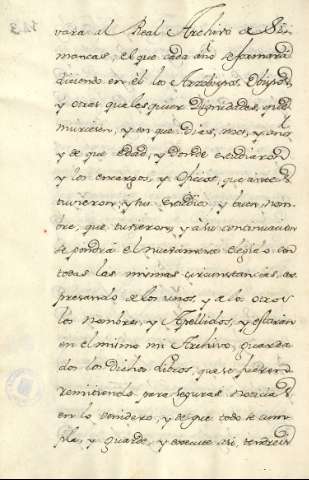 vara al Real Archivo de Si-
mancas, el que cada año se formará
diciendo en él los Arzobispos, Obispos,
y otras quales quier Dignidades, que
murieren, y en que dias, mes, y año
y de que edad, y donde estudiaron
y los encargos, y oficios, que antes
tuvieron, y sus Estudios y buen nom-
bre, que tuvieron, y à su continuacion
se pondrá el nuevamente elegido con
todas las mismas circunstancias, ex
presando de los unos, y de los otros
los nombres, y Apellidos, y estarán
en el mismo mi Archivo, guarda
dos los dichos libros, que se fueren
remitiendo para seguras noticias
en lo venidero, y de que todo se cum-
pla, y guarde, y execute asi, tendreis